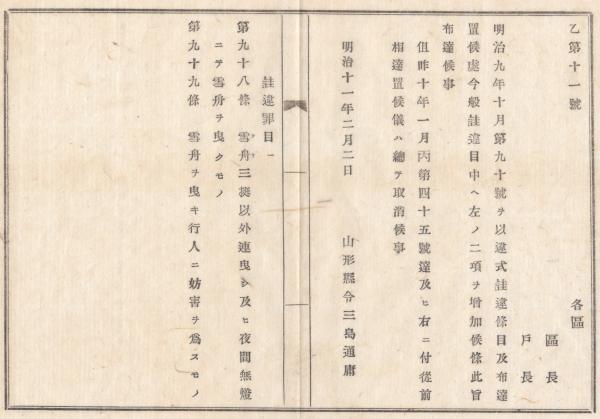 乙第十一號
各區
區長
戸長
明治九年十月第九十號ヲ以違式詿違條目及布達
置候處今般詿違目中ヘ左ノ二項ヲ增加候條此旨
布達候事
但昨十年一月丙第四十五號達及ヒ右ニ付從前
相達置候儀ハ總テ取消候事
明治十一年二月二日
山形縣令三島通庸
詿違罪目
第九十八條 雪舟三挺以外連曳シ及ヒ夜間無燈
ニテ雪舟ヲ曳クモノ
第九十九條 雪舟ヲ曳キ行人ニ妨害ヲ爲スモノ